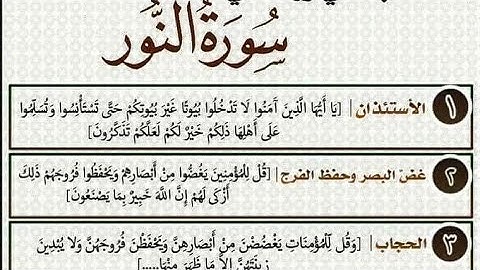 سُورَةُ النُّور
١ الأستئذان | [يَا أَيُّهَا الَّذِينَ آمَنُوا لَا تَدْخُلُوا بُيُوتًا غَيْرَ بُيُوتِكُمْ حَتَّى تَسْتَأْنِسُوا وَتُسَلِّمُوا
عَلَى أَهْلِهَا ذَلِكُمْ خَيْرٌ لَكُمْ لَعَلَّكُمْ تَذَكَّرُونَ]
٢ غض البصر وحفظ الفرج | [قُلْ لِلْمُؤْمِنِينَ يَغُضُّوا مِنْ أَبْصَارِهِمْ وَيَحْفَظُوا فُرُوجَهُمْ ذَلِكَ
أَزْكَى لَهُمْ إِنَّ اللَّهَ خَبِيرٌ بِمَا يَصْنَعُونَ]
٣ الحجاب | [وَقُل لِّلْمُؤْمِنَاتِ يَغْضُضْنَ مِنْ أَبْصَارِهِنَّ وَيَحْفَظْنَ فُرُوجَهُنَّ وَلَا يُبْدِينَ
زِينَتَهُنَّ إِلَّا مَا ظَهَرَ مِنْهَا.....]